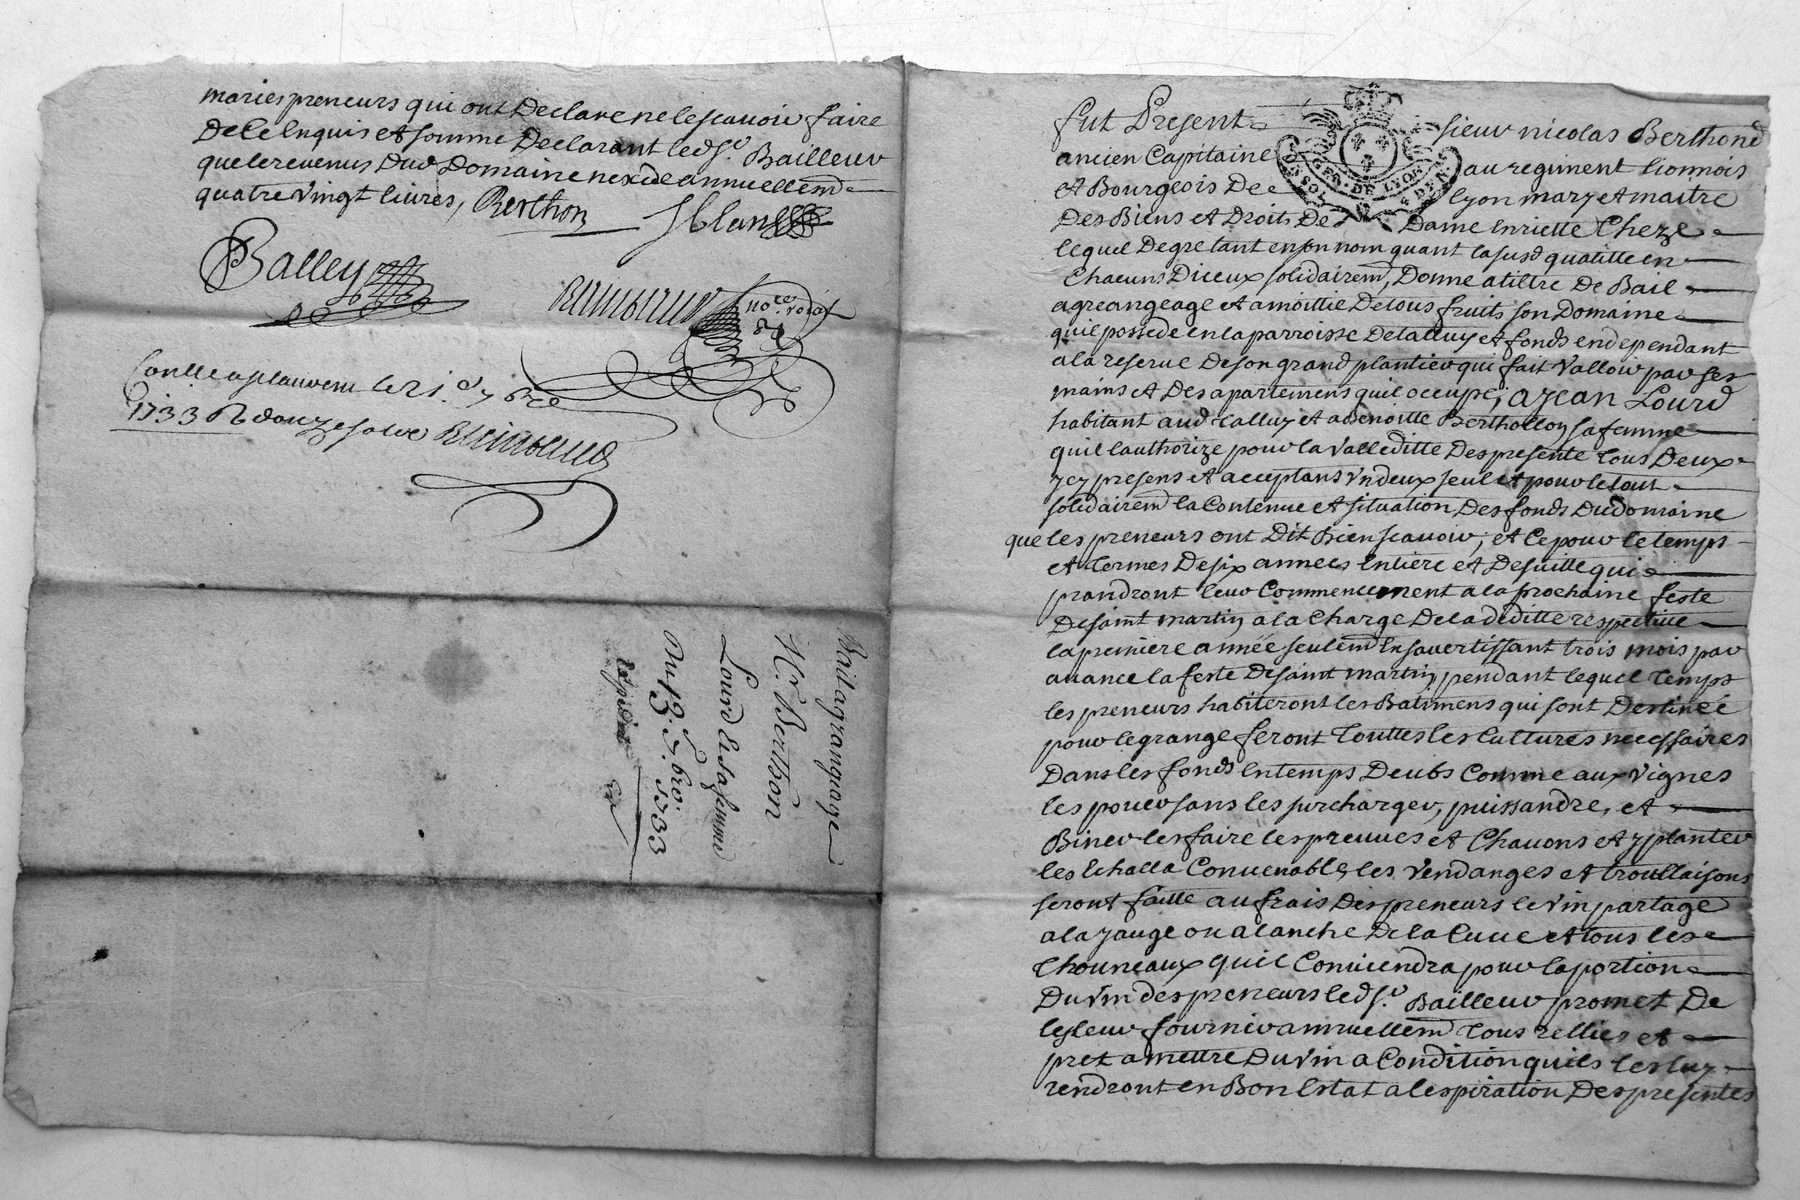 maries preneurs qui ont Declare ne le scavoir faire
De ce Enquis et somme Declarant led sr. Bailleur
que le revenus Dud Domaine nexcede annuellemt
quatre Vingt livres, Berthon
Balley
nore. roial
1733
Bail a grangeage
Mr. Berthon
Lourd et sa femme
Du 13. 7.bre. 1733
Expedié
fut Present sieur nicolas Berthond
ancien Capitaine au regiment lionnois
et Bourgeois De lyon mary et maitre
Des Biens et Droits De Dame Enriette Cheze
GEN. DE LYON
lequel De gre tant en son nom quant la susd qualitte en
Chacuns Diceux solidairemt, Donne a tiltre De Bail
a greangeage et a moittie De tous fruits son Domaine
quil possede en la parroisse De talluy et fonds en dependant
a la reserve De son grand plantier qui fait Valloir par ses
mains et Des apartemens quil occupe, a jean Lourd
habitant aud talluy et a Benoitte Bertholloy sa femme
quil lauthorize pour la Valleditte Des presente tous Deux
y cy presens et acceptans Vn deux seul et pour le tout
solidairemt la Contenue et situation Des fonds Dud domaine
que les preneurs ont Dit Bien scavoir, et ce pour le temps
et termes De six annees Entiere et De suitte qui
prandront leur Commencement a la prochaine feste
De saint martin a la Charge De la deditte respective
la premiere année seulemt En savertissant trois mois par
avance la feste De saint martin, pendant lequel temps
les preneurs habiteront les Batimens qui sont Destinéé
pour le grange feront Touttes les Cultures necessaires
Dans les fonds En temps Deubs Comme aux Vignes
les pouer sans les surcharger, puissandre, et
Biner les faire les preuves et Chavons et y planter
les Echalla Convenables les Vendanges et troullaisons
seront faitte au frais Des preneurs le Vin partage
a la jauge ou a lanche De la Cuve et tous les
thouneaux quil Conviendra pour la portion
Du Vin des preneurs led sr. Bailleur promet De
les leur fournir annuellemt tous rellies et
pret a mettre Du Vin a Condition quils les luy
rendront en Bon Estat a lespiration Des presentes